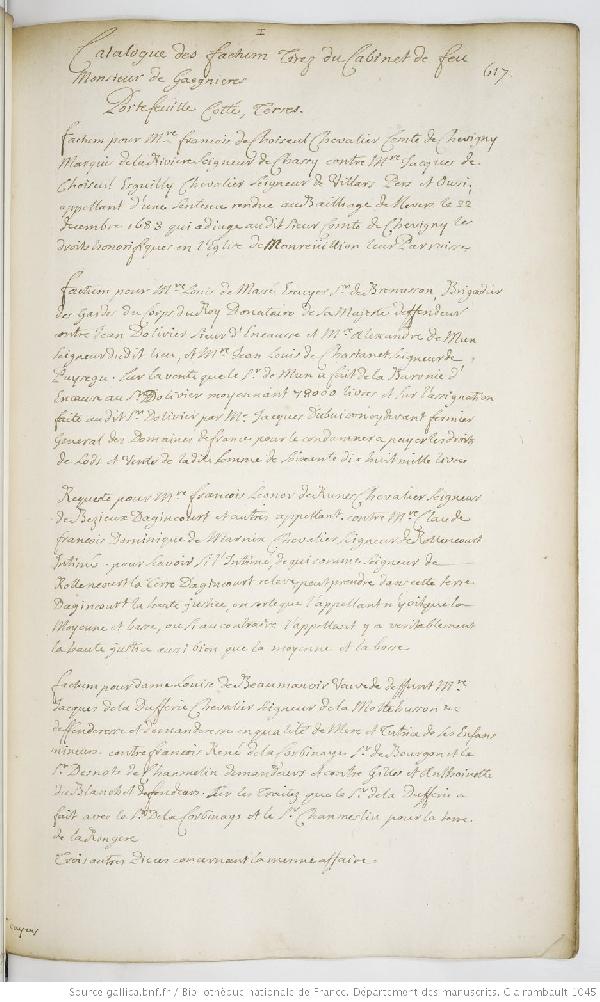 I
Catalogue des factum Tirez du Cabinet de feu
Monsieur de Gaegnieres
617.
Portefeuille Cotté, Terres.
factum pour Mre. francois de Choiseul Chevalier Comte de Chevigny
Marquis de la Riviere Seigneur de Chassy contre Mre. Jacques de
Choiseul Esguilly Chevalier Seigneur de Villars Pers et Oussi,
appellant d'une sentence rendue au Bailliage de Nevers le 22
decembre 1683 qui adiuge audit sieur Comte de Chevigny les
droits honorifiques en l'Eglise de Monreüillion leur Parroisse
factum pour Mre. Louis de Massé Ecuyer Sr. de Bremasson, Brigadier
des Gardes du Corps du Roy Donataire de sa Majesté deffendeur
contre Jean Dolivier sieur d'Encausse et Mre. Alexandre de Mun
Seigneur dudit lieu, et Mre. Jean Louis de Chastanet Seigneur de
Puysegu. Sur la vente que le Sr. de Mun a fait de la Baronie d'
Encausse au Sr. Dolivier moyennant 78000 livres et sur l'assignation
faite audit Sr. Dolivier par Me. Jacques Dubuisson cydevant fermier
General des Domaines de france pour le condamner a payer les droits
de Lods et Ventes de ladite somme de soixante dix huit mille livres
Requeste pour Mre. francois Leonor de Runes Chevalier Seigneur
de Bezieux Dagincourt et autres appellant. contre Mre. Claude
francois Dominique de Warnin Chevalier Seigneur de Rollencourt
Intimé. pour sçavoir si l'Intimé, de qui comme Seigneur de
Rollencourt la Terre Dagincourt releve, peut prendre dans cette terre
Dagincourt la haute justice, en sorte que l'appellant n'y ait que la
Moyenne et basse, ou si au contraire l'appellant y a veritablement
la haute justice aussi bien que la moyenne et la basse
factum pour dame Louise de Beaumanoir Vauve de deffunt Mre.
Jacques de la Dufferie Chevalier Seigneur de la Mottehusson
deffenderesse et demanderesse en qualité de Mere et Tutrice de ses Enfans
mineurs. contre francois René de la Corbinaye Sr. de Bourgon et le
Sr. Desnots de Channelin demandeurs et contre Gilles et Anthoinette
du Blanchet defendeurs. Sur les Traitez que le Sr. de la Dufferie a
fait avec le Sr. De la Corbinaye et le Sr. Channeslin pour la terre
de la Rongere
Trois autres Pieces concernant la mesme affaire.
Source gallica.bnf.fr / Bibliothèque nationale de France. Département des manuscrits. Clairambault 1045